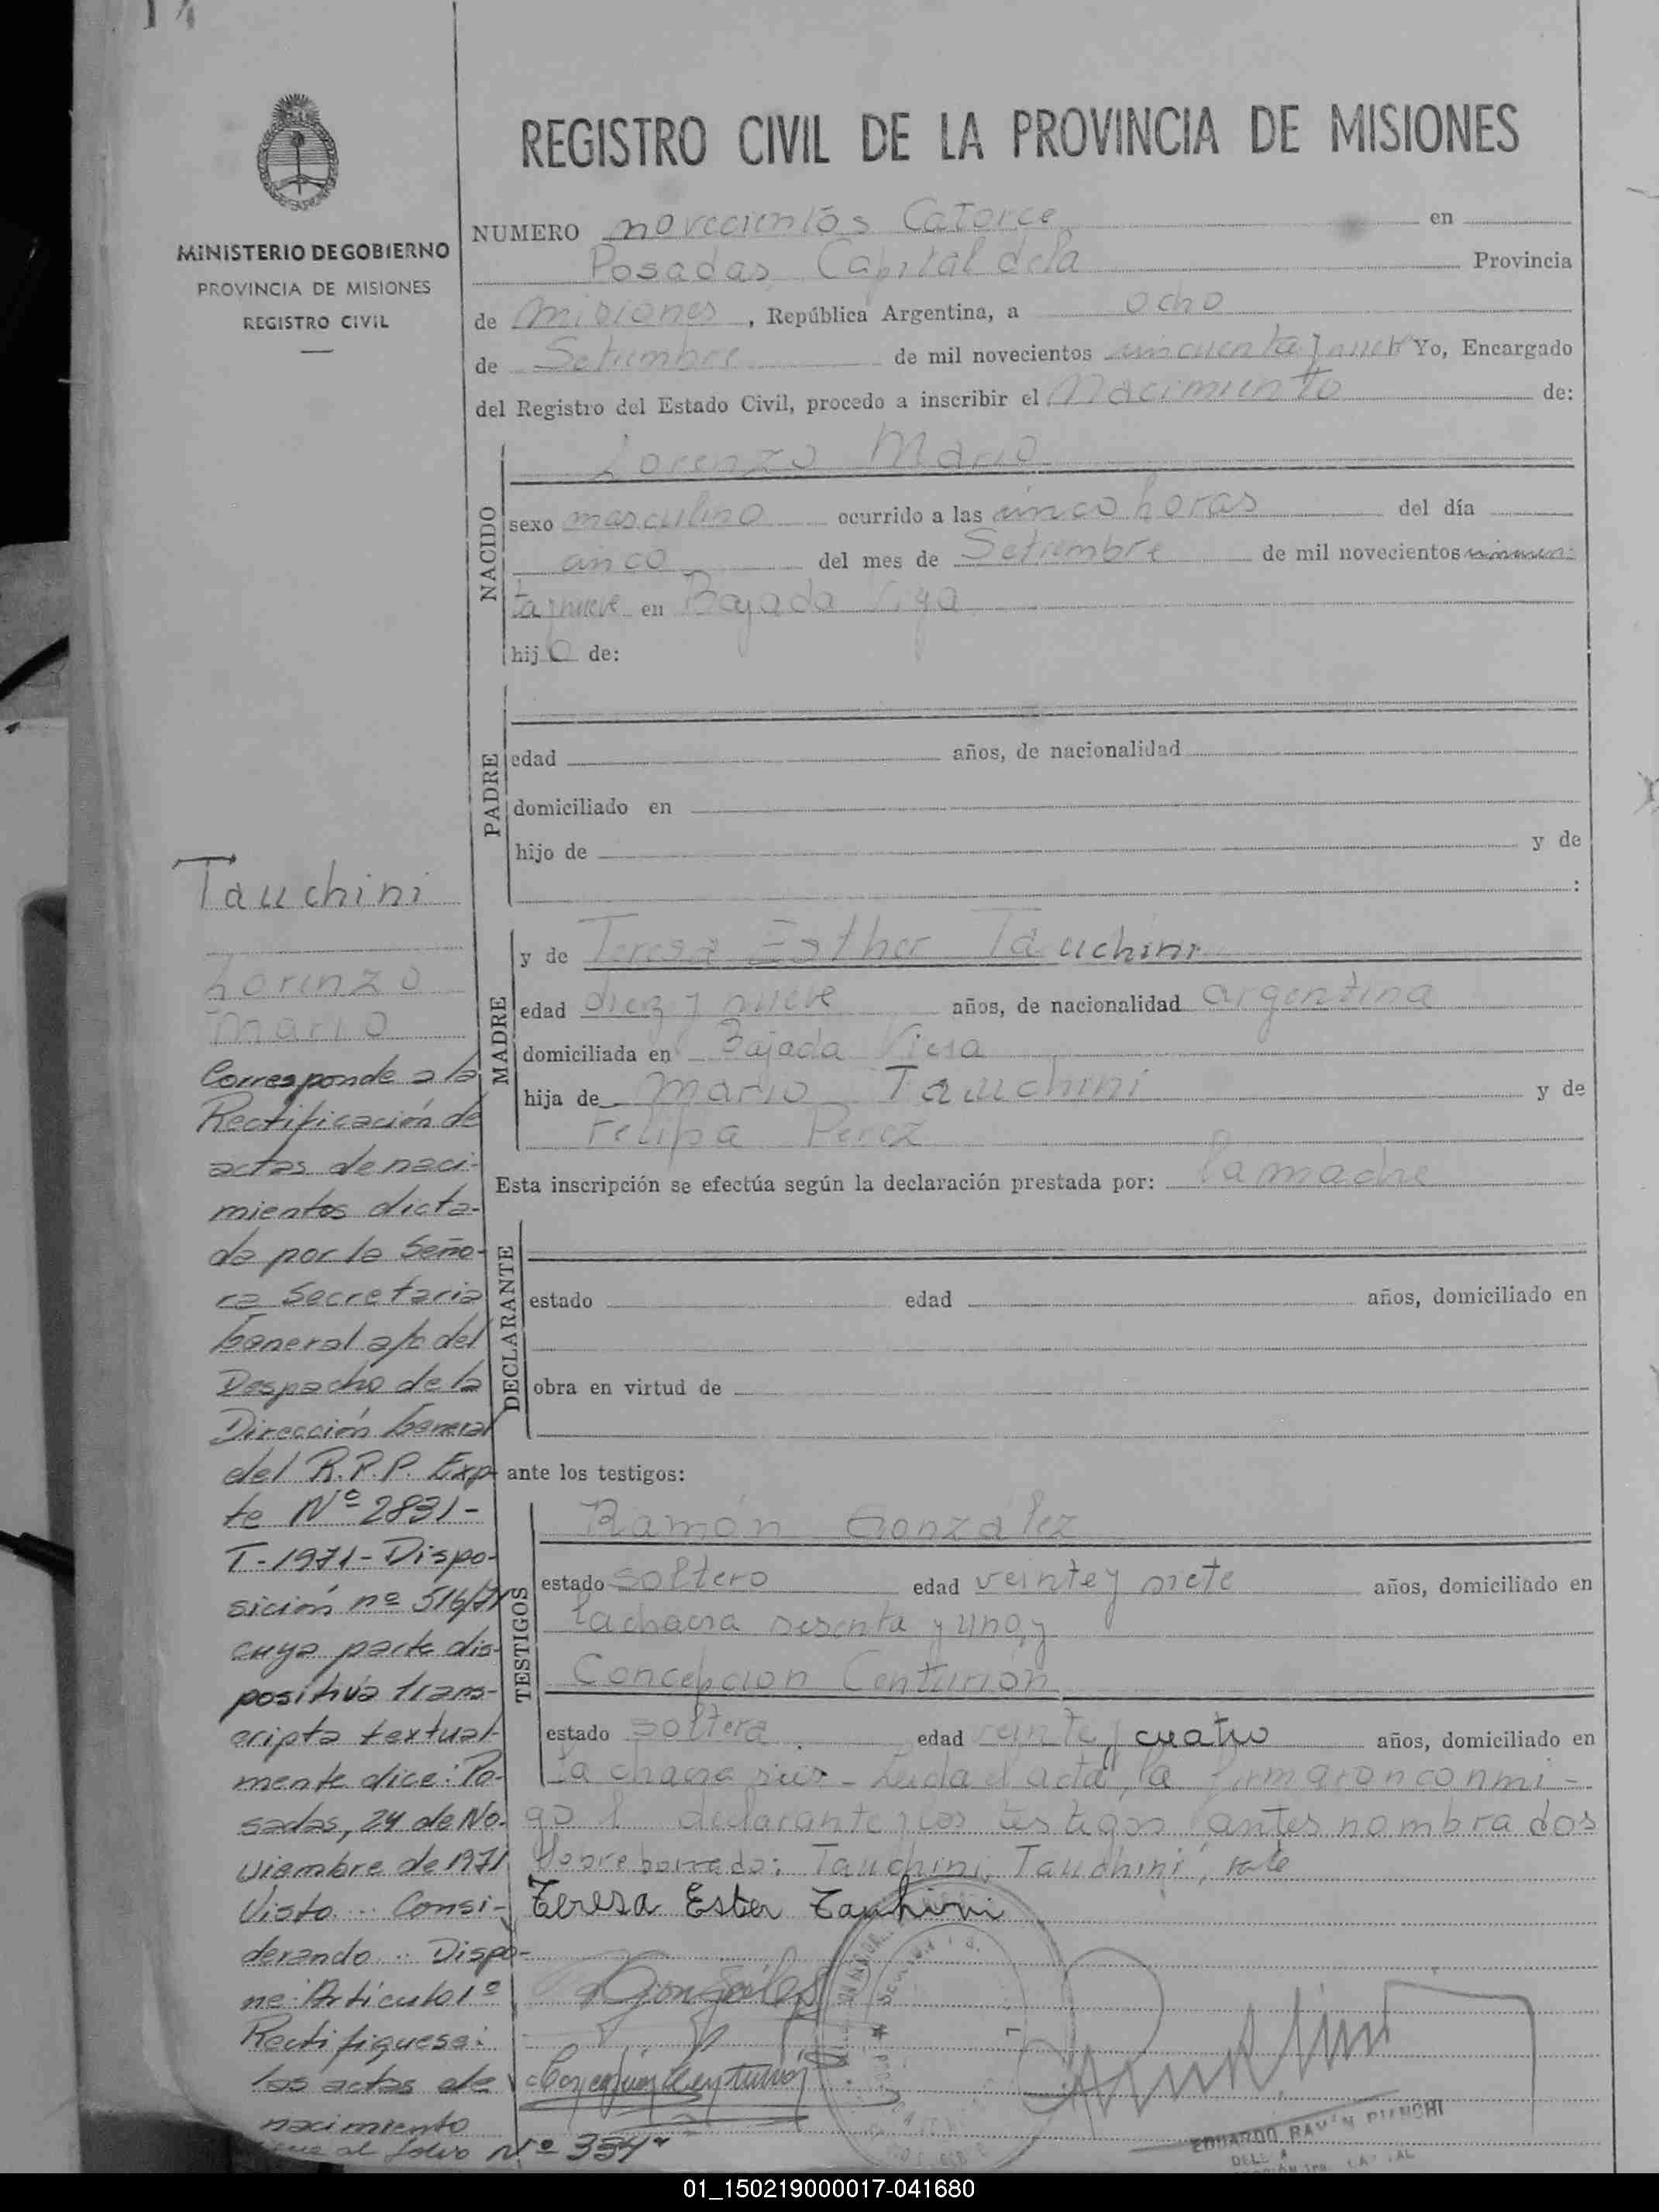 14
REGISTRO CIVIL DE LA PROVINCIA DE MISIONES
MINISTERIO DE GOBIERNO
PROVINCIA DE MISIONES
REGISTRO CIVIL
NUMERO novecientos Catorce en
Posadas Capital de la Provincia
de Misiones, República Argentina, a ocho
de Setiembre de mil novecientos cincuenta y nueve Yo, Encargado
del Registro del Estado Civil, procedo a inscribir el Nacimiento de:
NACIDO
Lorenzo Mario
sexo masculino ocurrido a las cinco horas del día
cinco del mes de Setiembre de mil novecientos cincuen-
ta y nueve en Bajada
hijo de:
PADRE
edad años, de nacionalidad
domiciliado en
hijo de y de
:
MADRE
y de Teresa Esther Tauchini
edad diez y nueve años, de nacionalidad argentina
domiciliada en Bajada
hija de Mario Tauchini y de
Felipa Perez
Esta inscripción se efectúa según la declaración prestada por: la madre
DECLARANTE
estado edad años, domiciliado en
obra en virtud de
ante los testigos:
TESTIGOS
Ramón Gonzalez
estado soltero edad veinte y siete años, domiciliado en
la chacra sesenta y uno, y
Concepcion Centurión
estado soltera edad veinte y cuatro años, domiciliado en
la chacra seis - Leida el acta, la firmaron conmi-
go l declarante y los testigos antes nombrados
Sobre borrado: Tauchini, Tauchini, vale
Teresa Ester Tauhini
Gonzales
Concepción Centurión
EDUARDO RAMÓN BIANCHI
Tauchini
Lorenzo
Mario
Corresponde a la
Rectificación de
actas de naci-
mientos dicta-
da por la Seño-
ra Secretaria
General a/c del
Despacho de la
Dirección General
del R.P.P. Exp-
te Nº 2831-
T-1971- Dispo-
sición nº 516/71
cuya parte dis-
positiva trans-
cripta textual-
mente dice: Po-
sadas, 24 de No-
viembre de 1971
Visto... Consi-
derando... Dispo-
ne: Articulo 1º
Rectifiquese:
las actas de
nacimiento
sigue al folio Nº 334
01_150219000017-041680